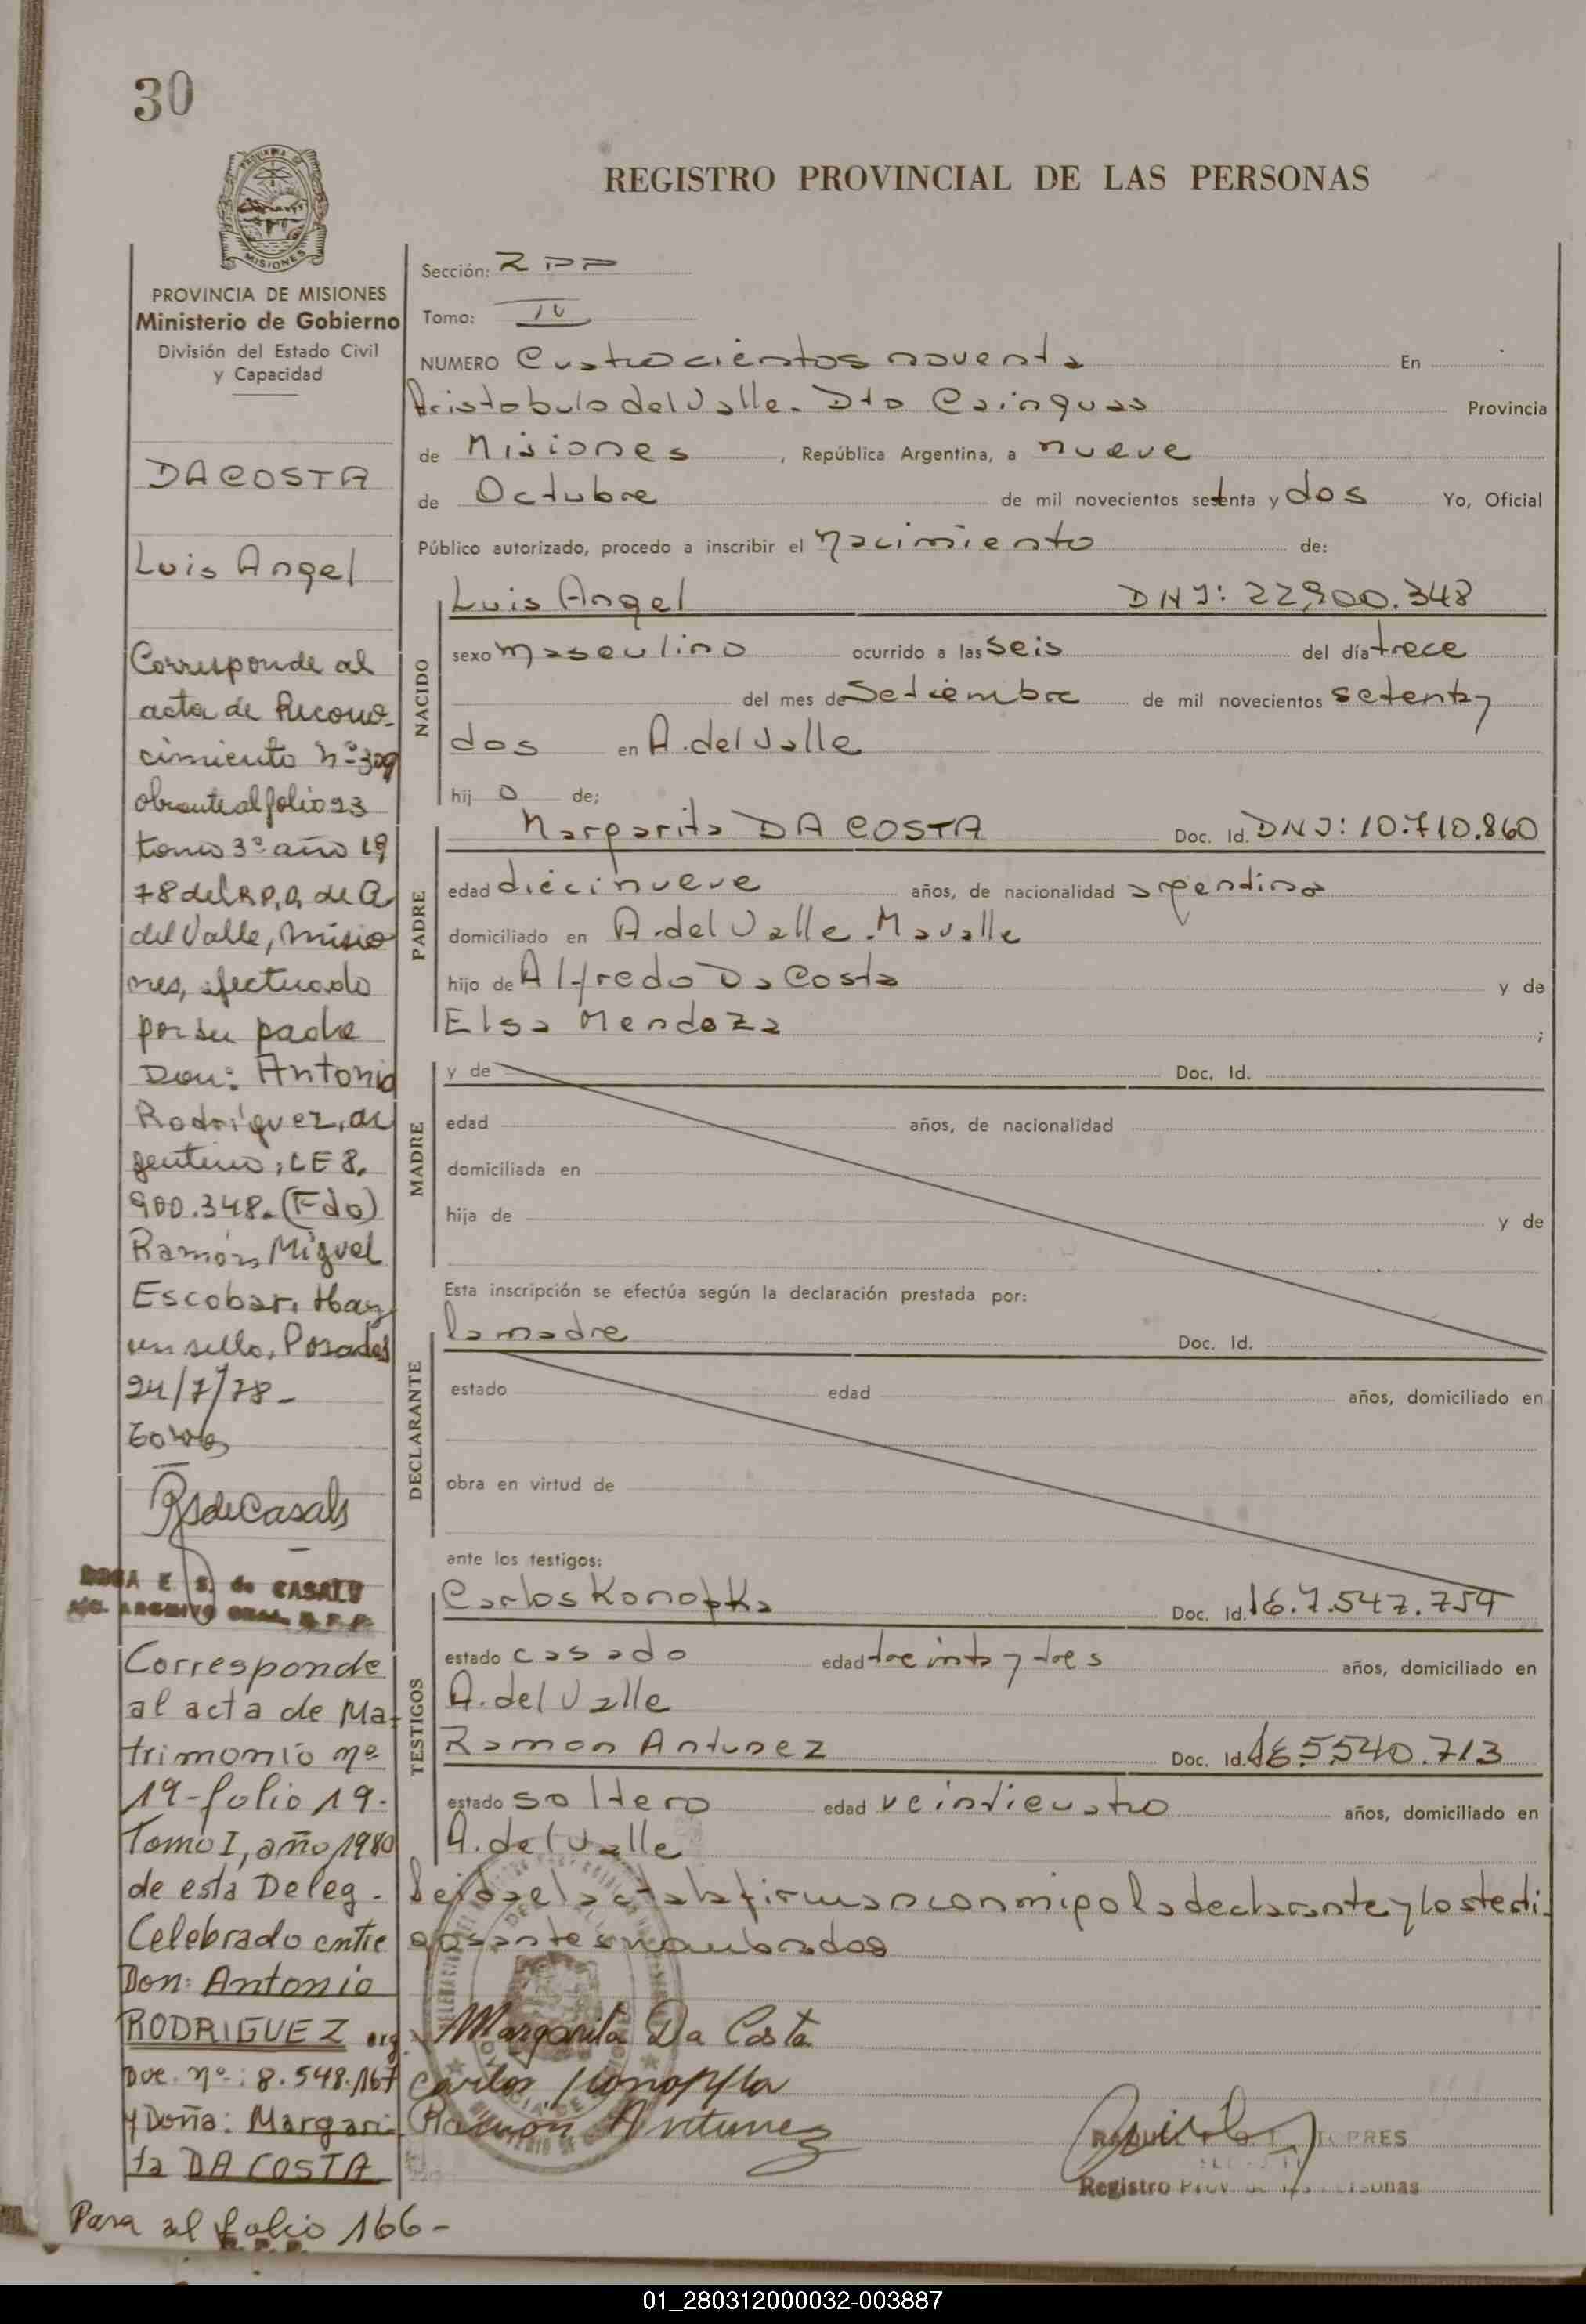 30
REGISTRO PROVINCIAL DE LAS PERSONAS
MISIONES
PROVINCIA DE MISIONES
Ministerio de Gobierno
División del Estado Civil
y Capacidad
DA COSTA
Luis Angel
Corresponde al
acta de Recono-
cimiento nº 309
obrante al folio 23
tomo 3º año 19
78 del R.P.P. de A.
del Valle, Misio
nes, efectuado
por su padre
Don: Antonio
Rodríguez, ar
gentino, LE 8.
900.348. (Fdo)
Ramón Miguel
Escobar. Hay
un sello. Posadas
24/7/78 -
RSdeCasals
ROSA E. S. de CASALS
Corresponde
al acta de Ma-
trimonio nº
19 - folio 19 -
Tomo I, año 1980
de esta Deleg.
Celebrado entre
Don: Antonio
RODRIGUEZ arg.
Doc. nº: 8.548.167
y Doña: Margari
ta DA COSTA
Pasa al folio 166 -
Sección: RPP
Tomo: IV
NUMERO Cuatrocientos noventa En
Aristobulo del Valle. Dto Cainguas Provincia
de Misiones, República Argentina, a nueve
de Octubre de mil novecientos setenta y dos Yo, Oficial
Público autorizado, procedo a inscribir el nacimiento de:
NACIDO
Luis Angel DNI: 22.900.348
sexo masculino ocurrido a las seis del día trece
del mes de Setiembre de mil novecientos setenta y
dos en A. del Valle
hij o de;
PADRE
Margarita DA COSTA Doc. Id. DNI: 10.710.860
edad diecinueve años, de nacionalidad argentina
domiciliado en A. del Valle. Mavalle
hijo de Alfredo Da Costa y de
Elsa Mendoza ;
MADRE
y de Doc. Id.
edad años, de nacionalidad
domiciliada en
hija de y de
Esta inscripción se efectúa según la declaración prestada por:
DECLARANTE
la madre Doc. Id.
estado edad años, domiciliado en
obra en virtud de
ante los testigos:
TESTIGOS
Carlos Konopka Doc. Id. 16.7.547.754
estado casado edad treinta y tres años, domiciliado en
A. del Valle
Ramon Antunez Doc. Id. 16.5.540.713
estado soltero edad veinticuatro años, domiciliado en
A. del Valle
Leida el acta la firman conmigo la declarante y los testi-
gos antes nombrados
Margarita Da Costa
Carlos Konopka
Ramon Antunez
TORRES
Registro Prov. de las Personas
01_280312000032-003887